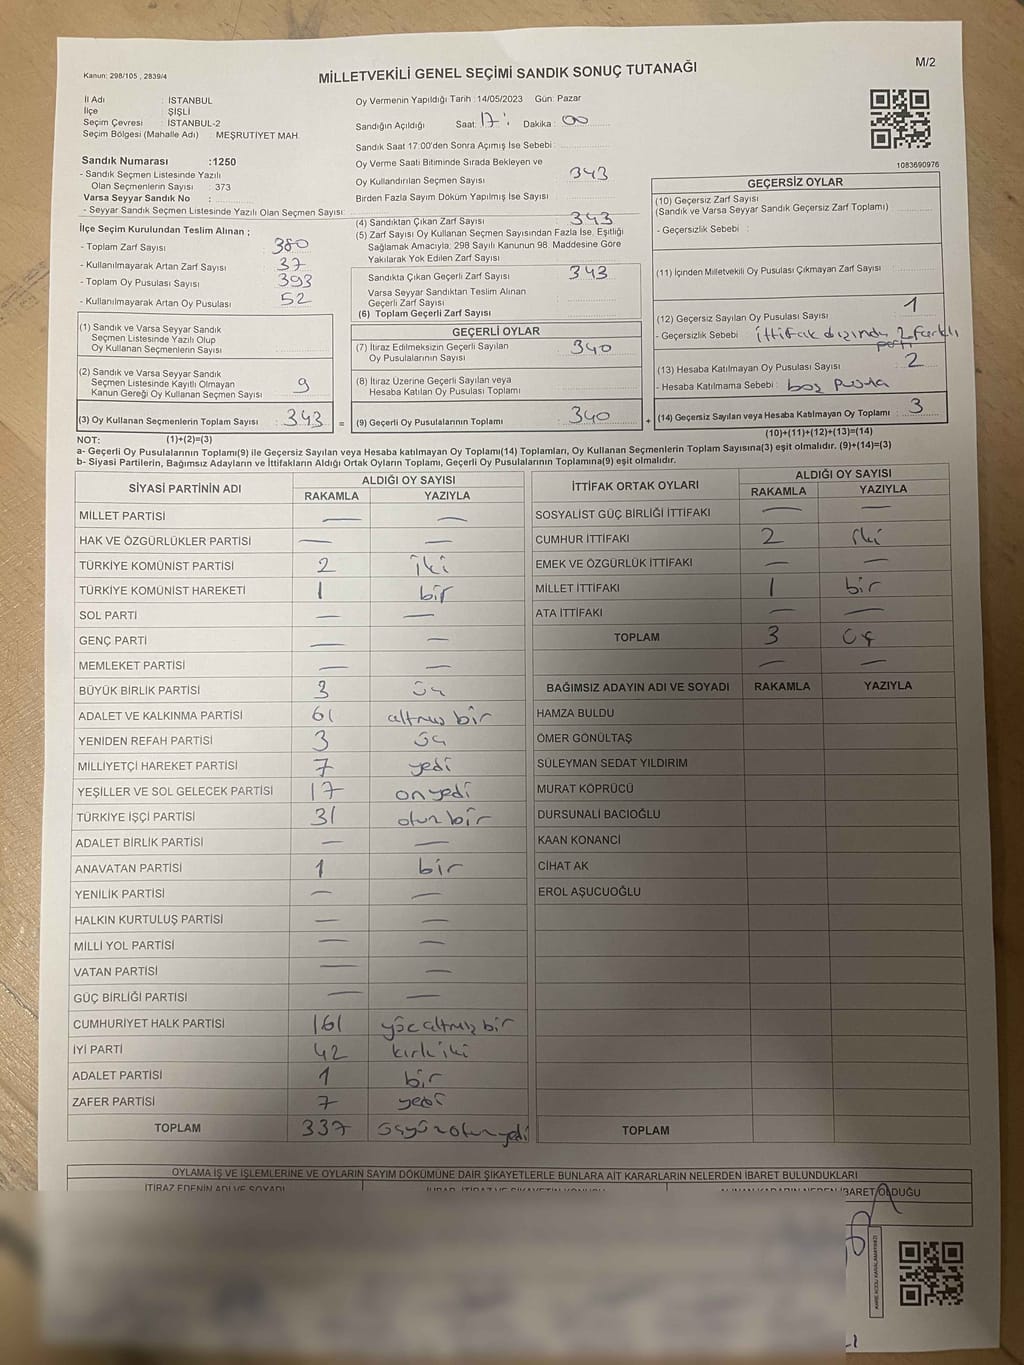 Kanun: 298/105 , 2839/4
MİLLETVEKİLİ GENEL SEÇİMİ SANDIK SONUÇ TUTANAĞI
M/2
İl Adı : İSTANBUL
İlçe : ŞİŞLİ
Seçim Çevresi : İSTANBUL-2
Seçim Bölgesi (Mahalle Adı) : MEŞRUTİYET MAH.
Sandık Numarası :1250
- Sandık Seçmen Listesinde Yazılı
Olan Seçmenlerin Sayısı : 373
Varsa Seyyar Sandık No :
- Seyyar Sandık Seçmen Listesinde Yazılı Olan Seçmen Sayısı:
İlçe Seçim Kurulundan Teslim Alınan ;
- Toplam Zarf Sayısı : 380
- Kullanılmayarak Artan Zarf Sayısı : 37
- Toplam Oy Pusulası Sayısı : 393
- Kullanılmayarak Artan Oy Pusulası : 52
(1) Sandık ve Varsa Seyyar Sandık
Seçmen Listesinde Yazılı Olup
Oy Kullanan Seçmenlerin Sayısı :
(2) Sandık ve Varsa Seyyar Sandık
Seçmen Listesinde Kayıtlı Olmayan
Kanun Gereği Oy Kullanan Seçmen Sayısı : 9
(3) Oy Kullanan Seçmenlerin Toplam Sayısı : 343 =
Oy Vermenin Yapıldığı Tarih :14/05/2023 Gün: Pazar
Sandığın Açıldığı Saat: 17 : Dakika : 00
Sandık Saat 17:00'den Sonra Açımış İse Sebebi :
Oy Verme Saati Bitiminde Sırada Bekleyen ve
Oy Kullandırılan Seçmen Sayısı : 343
Birden Fazla Sayım Döküm Yapılmış İse Sayısı :
(4) Sandıktan Çıkan Zarf Sayısı : 343
(5) Zarf Sayısı Oy Kullanan Seçmen Sayısından Fazla İse, Eşitliği
Sağlamak Amacıyla; 298 Sayılı Kanunun 98. Maddesine Göre
Yakılarak Yok Edilen Zarf Sayısı :
Sandıkta Çıkan Geçerli Zarf Sayısı : 343
Varsa Seyyar Sandıktan Teslim Alınan
Geçerli Zarf Sayısı :
(6) Toplam Geçerli Zarf Sayısı :
GEÇERLİ OYLAR
(7) İtiraz Edilmeksizin Geçerli Sayılan
Oy Pusulalarının Sayısı : 340
(8) İtiraz Üzerine Geçerli Sayılan veya
Hesaba Katılan Oy Pusulası Toplamı :
(9) Geçerli Oy Pusulalarının Toplamı : 340 +
1083690976
GEÇERSİZ OYLAR
(10) Geçersiz Zarf Sayısı
(Sandık ve Varsa Seyyar Sandık Geçersiz Zarf Toplamı) :
- Geçersizlik Sebebi :
(11) İçinden Milletvekili Oy Pusulası Çıkmayan Zarf Sayısı :
(12) Geçersiz Sayılan Oy Pusulası Sayısı : 1
- Geçersizlik Sebebi : ittifak dışında 2 farklı
parti
(13) Hesaba Katılmayan Oy Pusulası Sayısı : 2
- Hesaba Katılmama Sebebi : boş pusula
(14) Geçersiz Sayılan veya Hesaba Katılmayan Oy Toplamı : 3
NOT: (1)+(2)=(3) (10)+(11)+(12)+(13)=(14)
a- Geçerli Oy Pusulalarının Toplamı(9) ile Geçersiz Sayılan veya Hesaba katılmayan Oy Toplamı(14) Toplamları, Oy Kullanan Seçmenlerin Toplam Sayısına(3) eşit olmalıdır. (9)+(14)=(3)
b- Siyasi Partilerin, Bağımsız Adayların ve İttifakların Aldığı Ortak Oyların Toplamı, Geçerli Oy Pusulalarının Toplamına(9) eşit olmalıdır.
SİYASİ PARTİNİN ADI ALDIĞI OY SAYISI
RAKAMLA YAZIYLA
MİLLET PARTİSİ — —
HAK VE ÖZGÜRLÜKLER PARTİSİ — —
TÜRKİYE KOMÜNİST PARTİSİ 2 iki
TÜRKİYE KOMÜNİST HAREKETİ 1 bir
SOL PARTİ — —
GENÇ PARTİ — —
MEMLEKET PARTİSİ — —
BÜYÜK BİRLİK PARTİSİ 3 üç
ADALET VE KALKINMA PARTİSİ 61 altmış bir
YENİDEN REFAH PARTİSİ 3 üç
MİLLİYETÇİ HAREKET PARTİSİ 7 yedi
YEŞİLLER VE SOL GELECEK PARTİSİ 17 on yedi
TÜRKİYE İŞÇİ PARTİSİ 31 otuz bir
ADALET BİRLİK PARTİSİ — —
ANAVATAN PARTİSİ 1 bir
YENİLİK PARTİSİ — —
HALKIN KURTULUŞ PARTİSİ — —
MİLLİ YOL PARTİSİ — —
VATAN PARTİSİ — —
GÜÇ BİRLİĞİ PARTİSİ — —
CUMHURİYET HALK PARTİSİ 161 yüz altmış bir
İYİ PARTİ 42 kırk iki
ADALET PARTİSİ 1 bir
ZAFER PARTİSİ 7 yedi
TOPLAM 337 üçyüz otuz yedi
İTTİFAK ORTAK OYLARI ALDIĞI OY SAYISI
RAKAMLA YAZIYLA
SOSYALİST GÜÇ BİRLİĞİ İTTİFAKI — —
CUMHUR İTTİFAKI 2 iki
EMEK VE ÖZGÜRLÜK İTTİFAKI — —
MİLLET İTTİFAKI 1 bir
ATA İTTİFAKI — —
TOPLAM 3 üç
— —
BAĞIMSIZ ADAYIN ADI VE SOYADI RAKAMLA YAZIYLA
HAMZA BULDU
ÖMER GÖNÜLTAŞ
SÜLEYMAN SEDAT YILDIRIM
MURAT KÖPRÜCÜ
DURSUNALİ BACIOĞLU
KAAN KONANCİ
CİHAT AK
EROL AŞUCUOĞLU
TOPLAM
OYLAMA İŞ VE İŞLEMLERİNE VE OYLARIN SAYIM DÖKÜMÜNE DAİR ŞİKAYETLERLE BUNLARA AİT KARARLARIN NELERDEN İBARET BULUNDUKLARI
İTİRAZ EDENİN ADI VE SOYADI